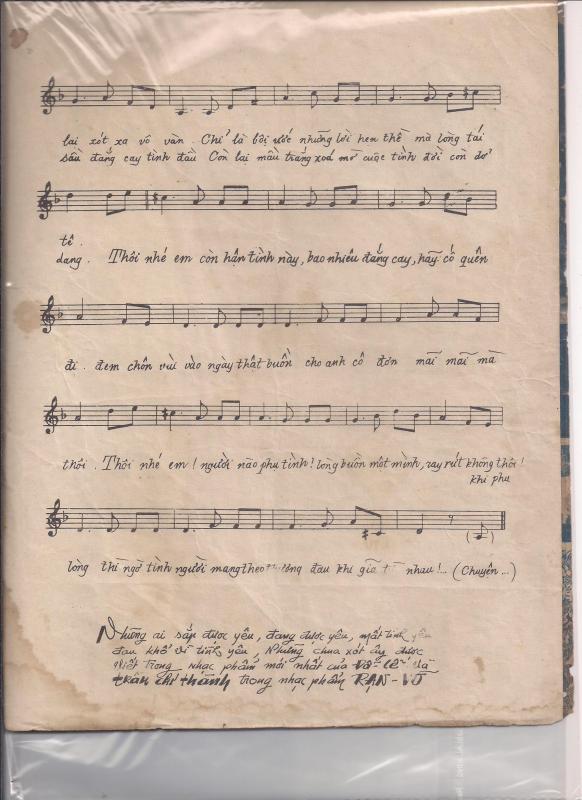 lai xót xa vô vàn. Chỉ là bội ước những lời hẹn thề mà lòng tái
sầu đắng cay tình đầu Còn lai mầu trắng xoá mơ cuộc tình đời còn dở
tê.
dang. Thôi nhé em còn hận tình này, bao nhiêu đắng cay, hãy cố quên
đi. đem chôn vùi vào ngày thật buồn cho anh cô đơn mãi mãi mà
thôi. Thôi nhé em! người nào phụ tình! lòng buồn một mình, ray rứt không thôi!
khi phụ
lòng thì ngỡ tình người mang theo thương đau khi giã từ nhau!... (Chuyện...)
Những ai sắp được yêu, đang được yêu, mất tình yêu
đau khổ vì tình yêu, Những chua xót ấy được
viết trong nhạc phẩm mới nhất của và
trần chí thành trong nhạc phẩm RẠN - VỠ